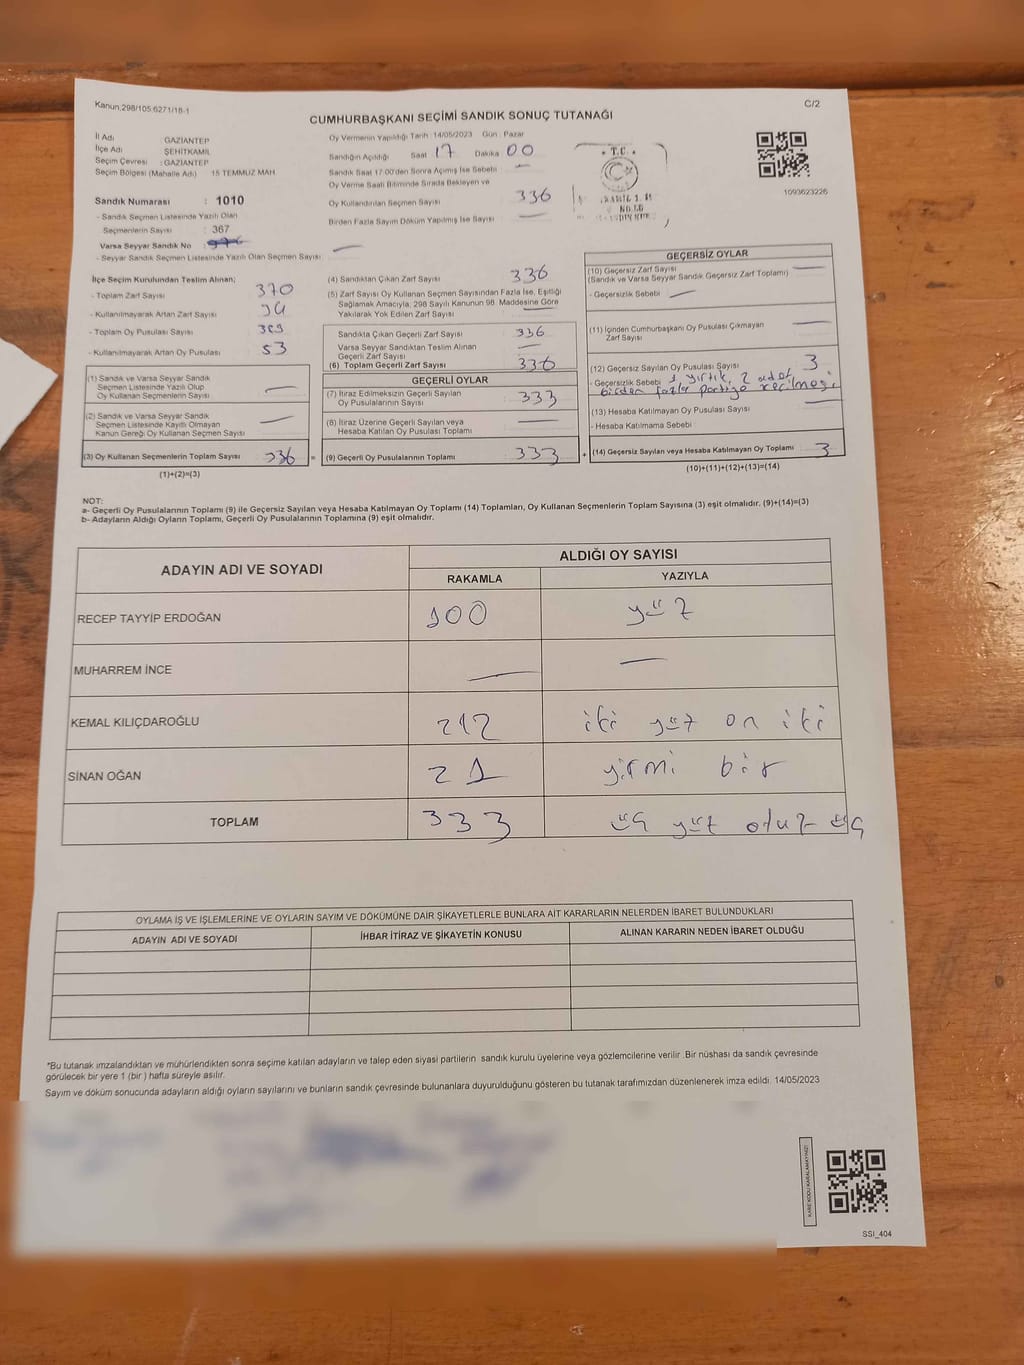 Kanun.298/105.6271/18-1
C/2
CUMHURBAŞKANI SEÇİMİ SANDIK SONUÇ TUTANAĞI
İl Adı GAZİANTEP
İlçe Adı ŞEHİTKAMİL
Seçim Çevresi : GAZİANTEP
Seçim Bölgesi (Mahalle Adı) 15 TEMMUZ MAH.
Sandık Numarası : 1010
- Sandık Seçmen Listesinde Yazılı Olan
Seçmenlerin Sayısı : 367
Varsa Seyyar Sandık No :
- Seyyar Sandık Seçmen Listesinde Yazılı Olan Seçmen Sayısı :
Oy Vermenin Yapıldığı Tarih : 14/05/2023 Gün : Pazar
Sandığın Açıldığı Saat 17 Dakika 00
Sandık Saat 17:00'den Sonra Açılmış İse Sebebi
Oy Verme Saati Bitiminde Sırada Bekleyen ve
Oy Kullandırılan Seçmen Sayısı 336
Birden Fazla Sayım Döküm Yapılmış İse Sayısı
T.C.
1093623226
İlçe Seçim Kurulundan Teslim Alınan;
- Toplam Zarf Sayısı 370
- Kullanılmayarak Artan Zarf Sayısı 34
- Toplam Oy Pusulası Sayısı
- Kullanılmayarak Artan Oy Pusulası 53
(1) Sandık ve Varsa Seyyar Sandık
Seçmen Listesinde Yazılı Olup
Oy Kullanan Seçmenlerin Sayısı
(2) Sandık ve Varsa Seyyar Sandık
Seçmen Listesinde Kayıtlı Olmayan
Kanun Gereği Oy Kullanan Seçmen Sayısı
(3) Oy Kullanan Seçmenlerin Toplam Sayısı 336
(1)+(2)=(3)
(4) Sandıktan Çıkan Zarf Sayısı 336
(5) Zarf Sayısı Oy Kullanan Seçmen Sayısından Fazla İse, Eşitliği
Sağlamak Amacıyla, 298 Sayılı Kanunun 98. Maddesine Göre
Yakılarak Yok Edilen Zarf Sayısı
Sandıkta Çıkan Geçerli Zarf Sayısı 336
Varsa Seyyar Sandıktan Teslim Alınan
Geçerli Zarf Sayısı
(6) Toplam Geçerli Zarf Sayısı 336
GEÇERLİ OYLAR
(7) İtiraz Edilmeksizin Geçerli Sayılan
Oy Pusulalarının Sayısı 333
(8) İtiraz Üzerine Geçerli Sayılan veya
Hesaba Katılan Oy Pusulası Toplamı
= (9) Geçerli Oy Pusulalarının Toplamı 333
GEÇERSİZ OYLAR
(10) Geçersiz Zarf Sayısı
(Sandık ve Varsa Seyyar Sandık Geçersiz Zarf Toplamı)
- Geçersizlik Sebebi
(11) İçinden Cumhurbaşkanı Oy Pusulası Çıkmayan
Zarf Sayısı
(12) Geçersiz Sayılan Oy Pusulası Sayısı 3
- Geçersizlik Sebebi 1 yırtık, 2 adet
birden fazla partiye seçilmesi
(13) Hesaba Katılmayan Oy Pusulası Sayısı
- Hesaba Katılmama Sebebi
+ (14) Geçersiz Sayılan veya Hesaba Katılmayan Oy Toplamı 3
(10)+(11)+(12)+(13)=(14)
NOT:
a- Geçerli Oy Pusulalarının Toplamı (9) ile Geçersiz Sayılan veya Hesaba Katılmayan Oy Toplamı (14) Toplamları, Oy Kullanan Seçmenlerin Toplam Sayısına (3) eşit olmalıdır. (9)+(14)=(3)
b- Adayların Aldığı Oyların Toplamı, Geçerli Oy Pusulalarının Toplamına (9) eşit olmalıdır.
ADAYIN ADI VE SOYADI
ALDIĞI OY SAYISI
RAKAMLA YAZIYLA
RECEP TAYYİP ERDOĞAN 100 yüz
MUHARREM İNCE
KEMAL KILIÇDAROĞLU 212 iki yüz on iki
SİNAN OĞAN 21 yirmi bir
TOPLAM 333 üç yüz otuz üç
OYLAMA İŞ VE İŞLEMLERİNE VE OYLARIN SAYIM VE DÖKÜMÜNE DAİR ŞİKAYETLERLE BUNLARA AİT KARARLARIN NELERDEN İBARET BULUNDUKLARI
ADAYIN ADI VE SOYADI İHBAR İTİRAZ VE ŞİKAYETİN KONUSU ALINAN KARARIN NEDEN İBARET OLDUĞU
*Bu tutanak imzalandıktan ve mühürlendikten sonra seçime katılan adayların ve talep eden siyasi partilerin sandık kurulu üyelerine veya gözlemcilerine verilir .Bir nüshası da sandık çevresinde
görülecek bir yere 1 (bir ) hafta süreyle asılır.
Sayım ve döküm sonucunda adayların aldığı oyların sayılarını ve bunların sandık çevresinde bulunanlara duyurulduğunu gösteren bu tutanak tarafımızdan düzenlenerek imza edildi. 14/05/2023
KARE KODU KARALAMAYINIZ!
SSI_404